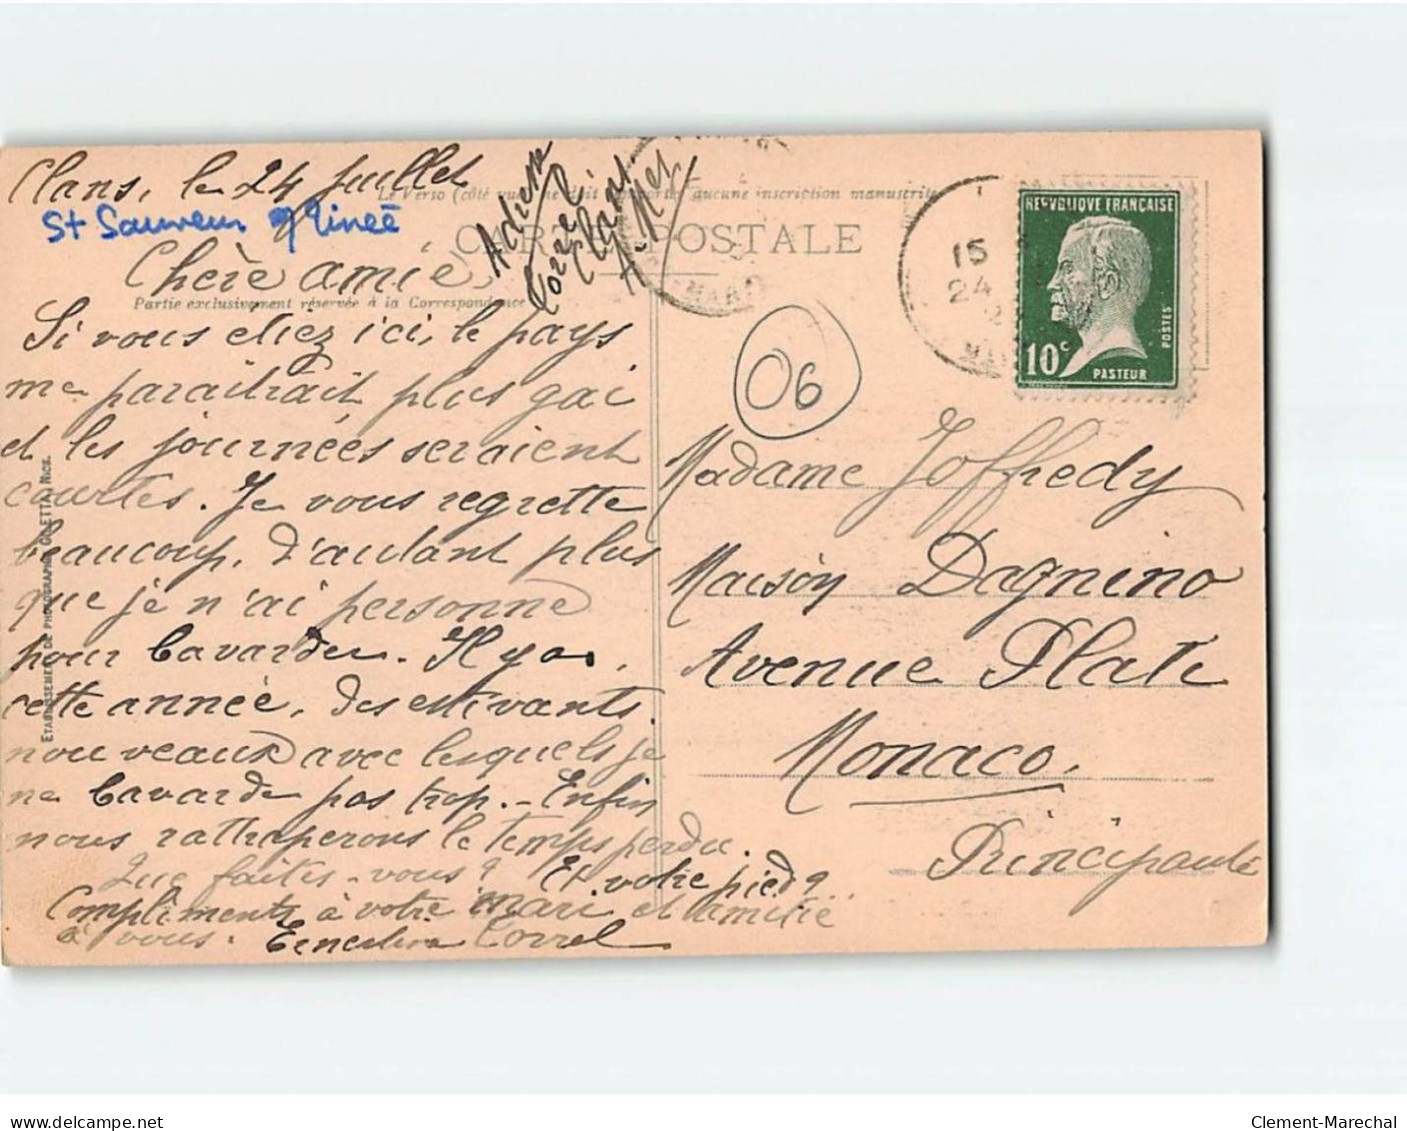 Clans, le 24 Juillet
St Sauveur s/ Tinée
Le Verso (côté vue) ne doit porter aucune inscription manuscrite
CARTE POSTALE
Adresse
Correl
Clans
A. Mes
Chère amie,
Partie exclusivement réservée à la Correspondance
Si vous étiez ici, le pays
me paraîtrait plus gai
et les journées seraient
courtes. Je vous regrette
beaucoup, d'autant plus
que je n'ai personne
pour bavarder. Il y a,
cette année, des estivants
nouveaux avec lesquels je
ne bavarde pas trop. - Enfin
nous rattraperons le temps perdu.
Que faites-vous? Et votre pied?
Compliments à votre mari et amitié
à vous. Ernestine Correl
ETABLISSEMENT DE PHOTOGRAPHIE GILETTA, NICE.
06
15
24
REPUBLIQUE FRANÇAISE
POSTES
10c
PASTEUR
Madame Joffredy
Maison Dagnino
Avenue Plati
Monaco.
Principauté
www.delcampe.net
Clement-Marechal